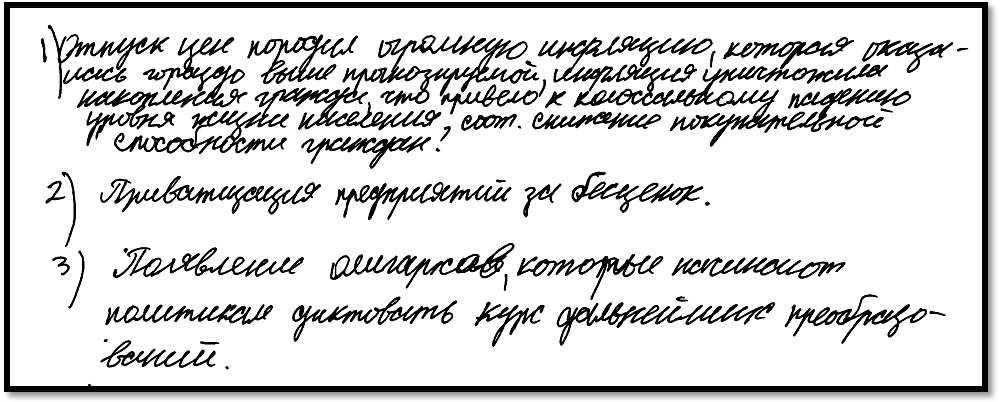 1) Отпуск цен породил огромную инфляцию, которая оказа-
лась гораздо выше прогнозируемой, инфляция уничтожила
накопления граждан, что привело к колоссальному падению
уровня жизни населения, соот. снижение покупательной
способности граждан!
2) Приватизация предприятий за бесценок.
3) Появление олигархов, которые начинают
политикам диктовать курс дальнейших преобразо-
ваний.